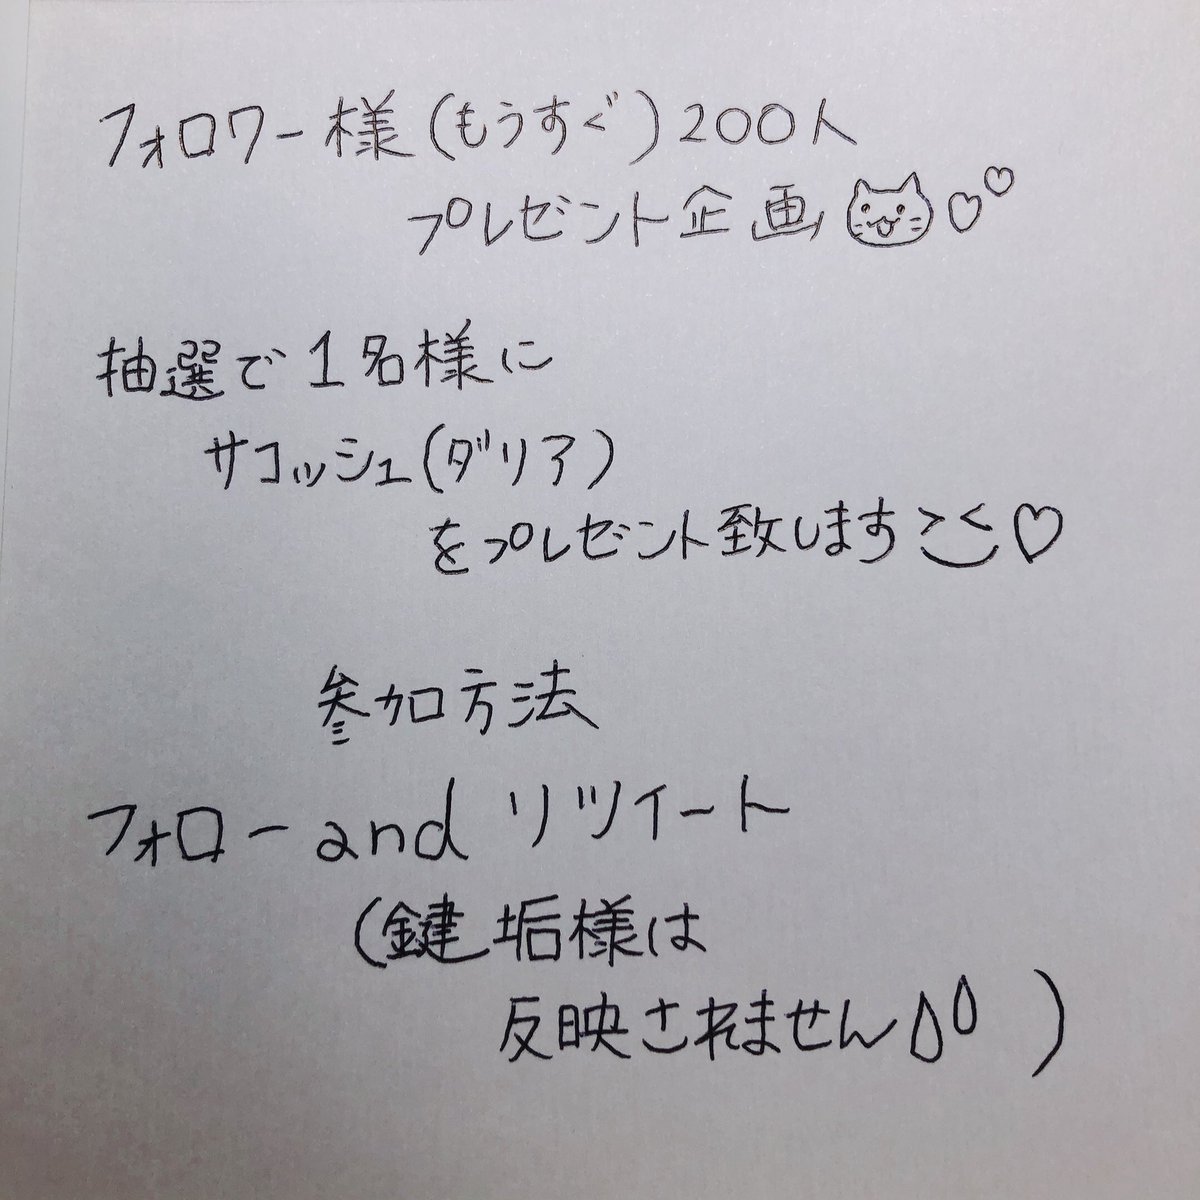 フォロワー様(もうすぐ)200人
プレゼント企画
抽選で1名様に
サコッシュ(ダリア)
をプレゼント致します
参加方法
フォローand リツイート
(鍵垢様は
反映されません)